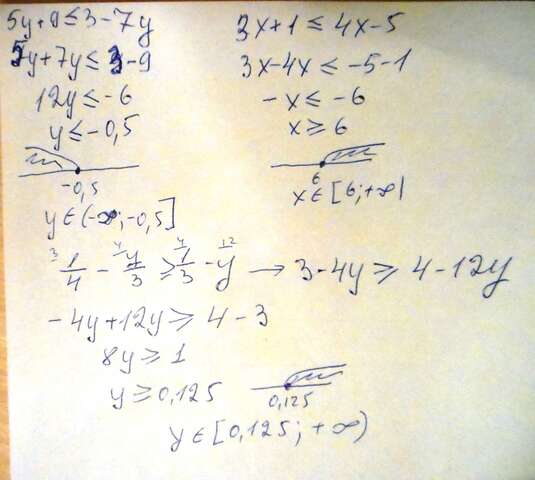 5y+9≤3-7y
5y+7y≤3-9
12y≤-6
y≤-0,5
-0,5
y∈(-∞;-0,5]
3x+1≤4x-5
3x-4x≤-5-1
-x≤-6
x≥6
6
x∈[6;+∞)
³1/4 - ⁴y/3 ≥ ⁴1/3 - ¹²y → 3-4y≥4-12y
-4y+12y≥4-3
8y≥1
y≥0,125
0,125
y∈[0,125;+∞)